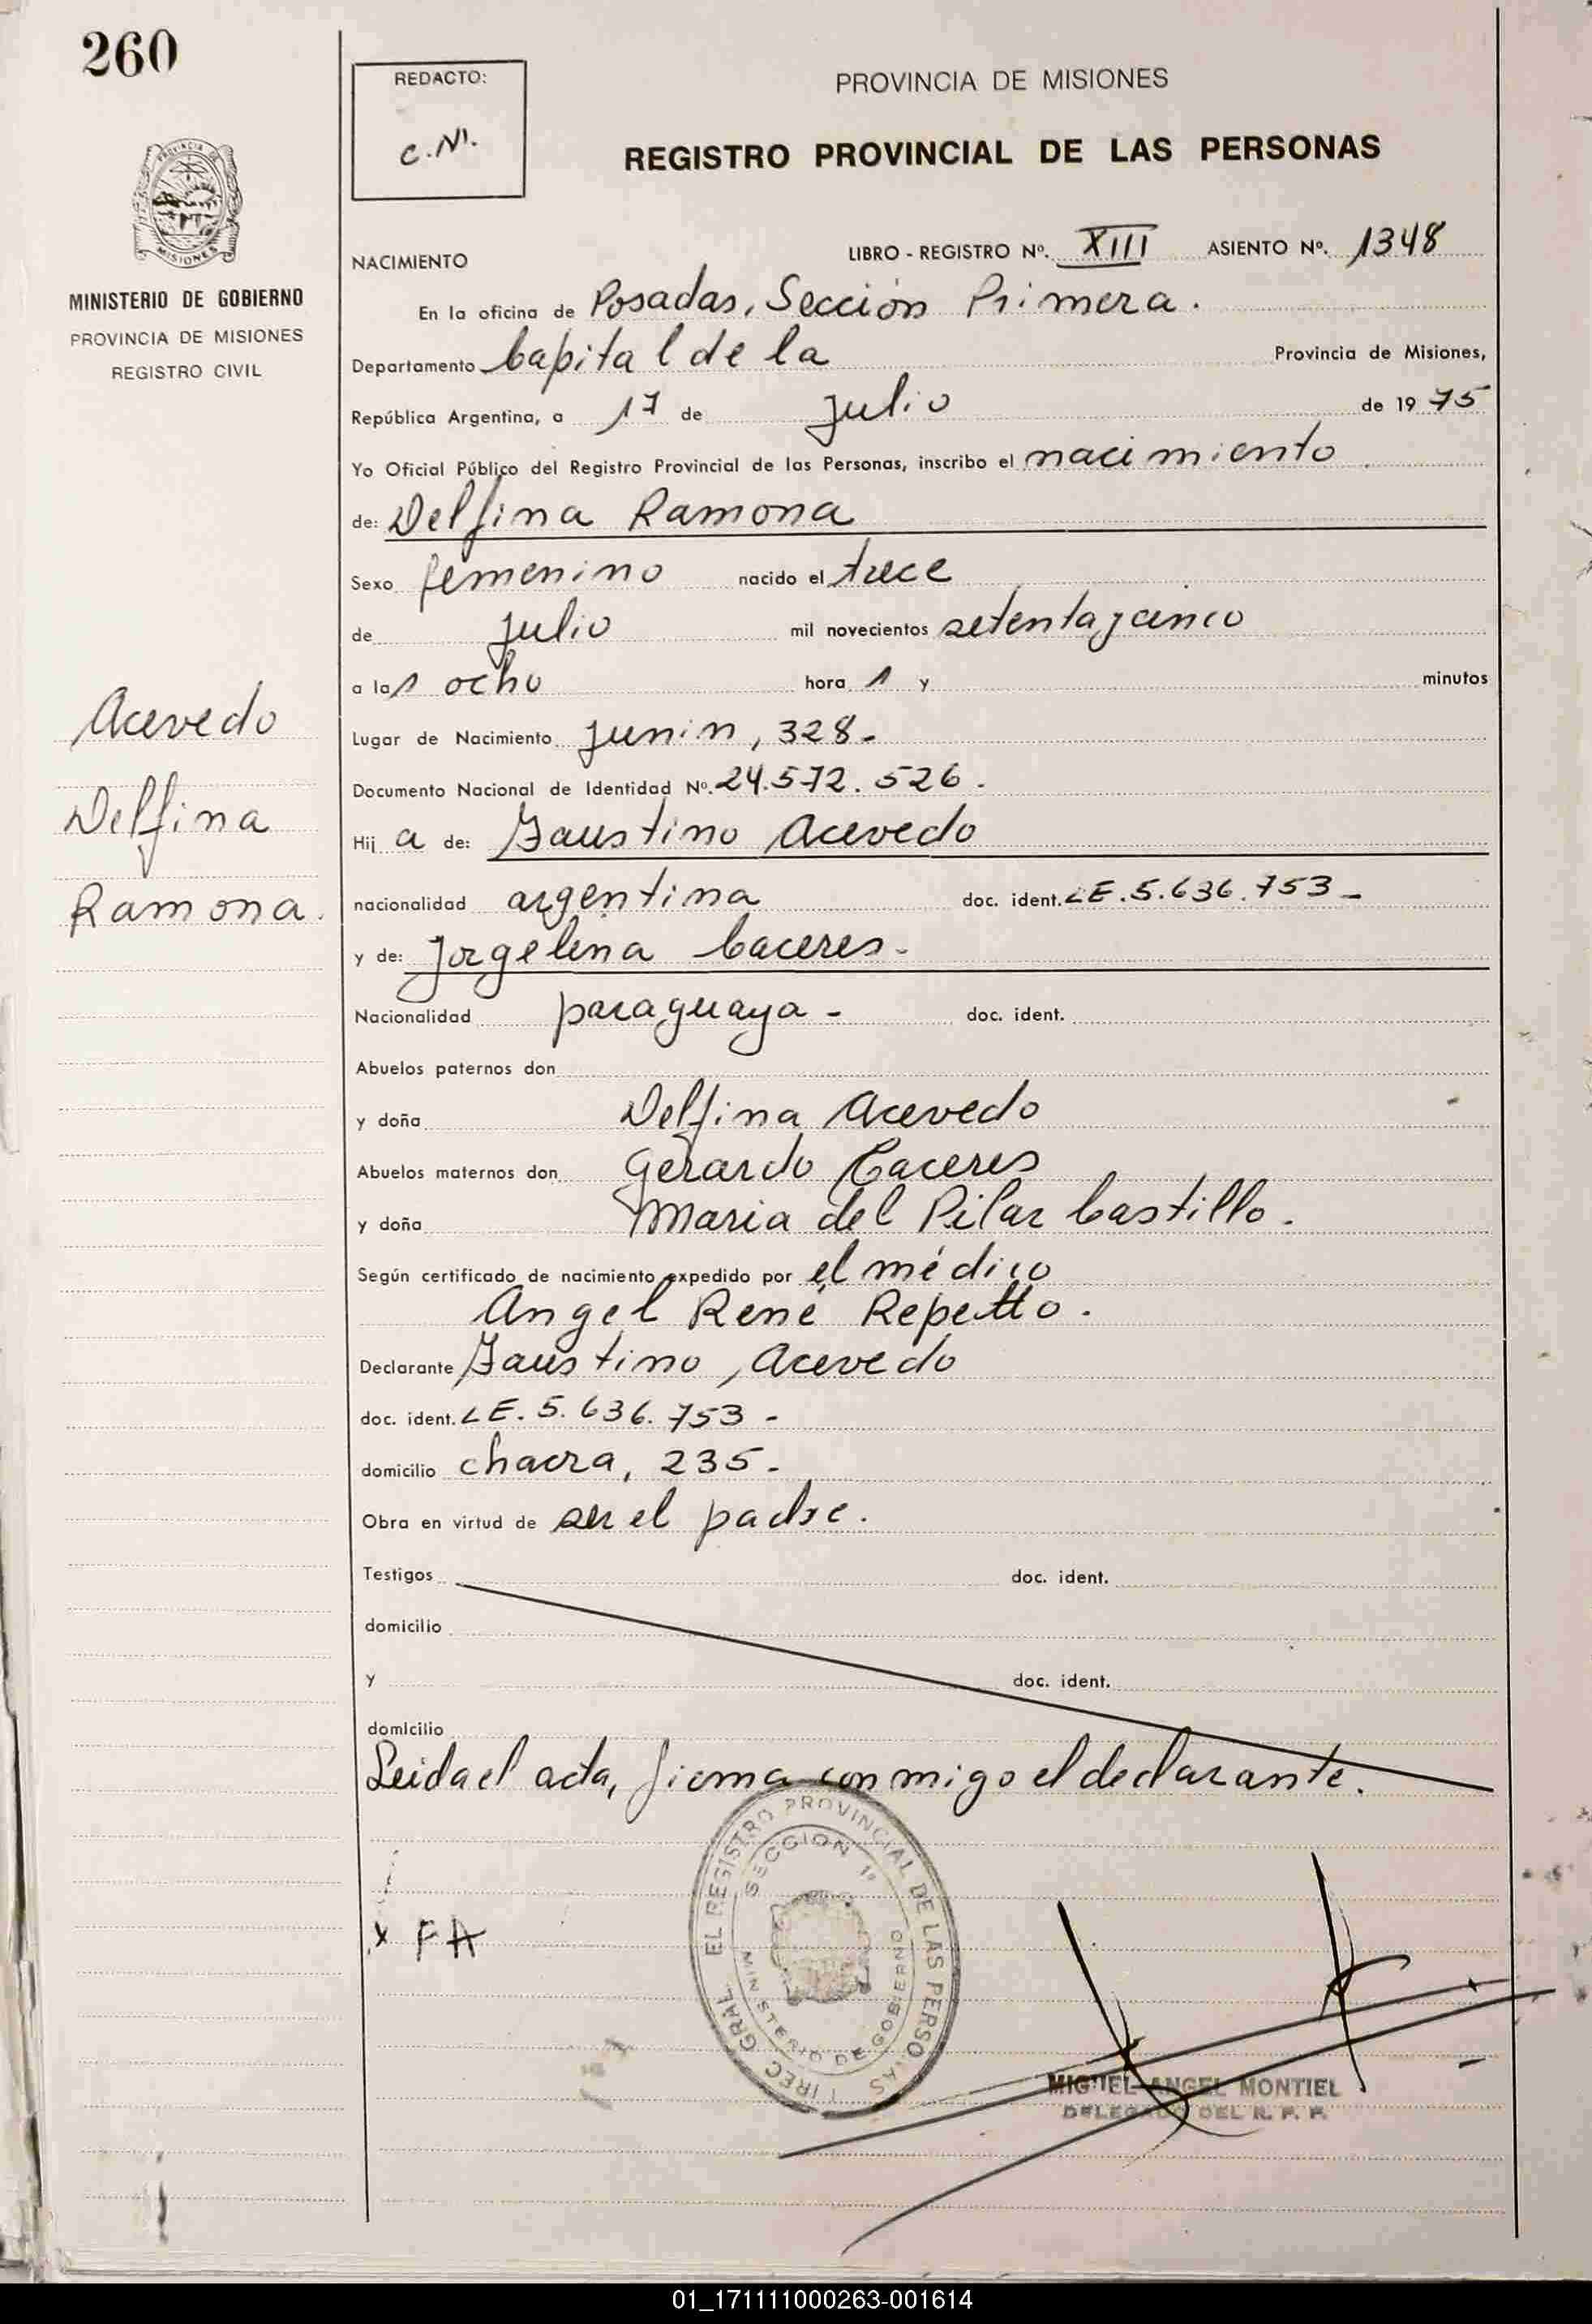 260
REDACTO:
C.N.
PROVINCIA DE MISIONES
REGISTRO PROVINCIAL DE LAS PERSONAS
PROVINCIA DE MISIONES
MINISTERIO DE GOBIERNO
PROVINCIA DE MISIONES
REGISTRO CIVIL
NACIMIENTO LIBRO - REGISTRO Nº. XIII ASIENTO Nº. 1348
En la oficina de Posadas, Sección Primera.
Departamento Capital de la Provincia de Misiones,
República Argentina, a 17 de Julio de 19 75
Yo Oficial Público del Registro Provincial de las Personas, inscribo el nacimiento
de: Delfina Ramona
Sexo femenino nacido el trece
de Julio mil novecientos setenta y cinco
a las ocho hora s y minutos
Lugar de Nacimiento Junin, 328.-
Documento Nacional de Identidad Nº. 24.572.526.
Hij a de: Faustino Acevedo
nacionalidad argentina doc. ident. LE.5.636.753-
y de: Jorgelina Caceres.-
Nacionalidad paraguaya - doc. ident.
Abuelos paternos don
y doña Delfina Acevedo
Abuelos maternos don Gerardo Caceres
y doña Maria del Pilar Castillo.
Según certificado de nacimiento expedido por el médico
Angel René Repetto.
Declarante Faustino Acevedo
doc. ident. LE. 5.636.753 -
domicilio chacra, 235.-
Obra en virtud de ser el padre.
Testigos doc. ident.
domicilio
y doc. ident.
domicilio
Leida el acta, firma conmigo el declarante.
Acevedo
Delfina
Ramona.
x FA
DIREC GRAL EL REGISTRO PROVINCIAL DE LAS PERSONAS
SECCION 1ª
MINISTERIO DE GOBIERNO
MIGUEL ANGEL MONTIEL
DELEGADO DEL R. P. P.
01_171111000263-001614